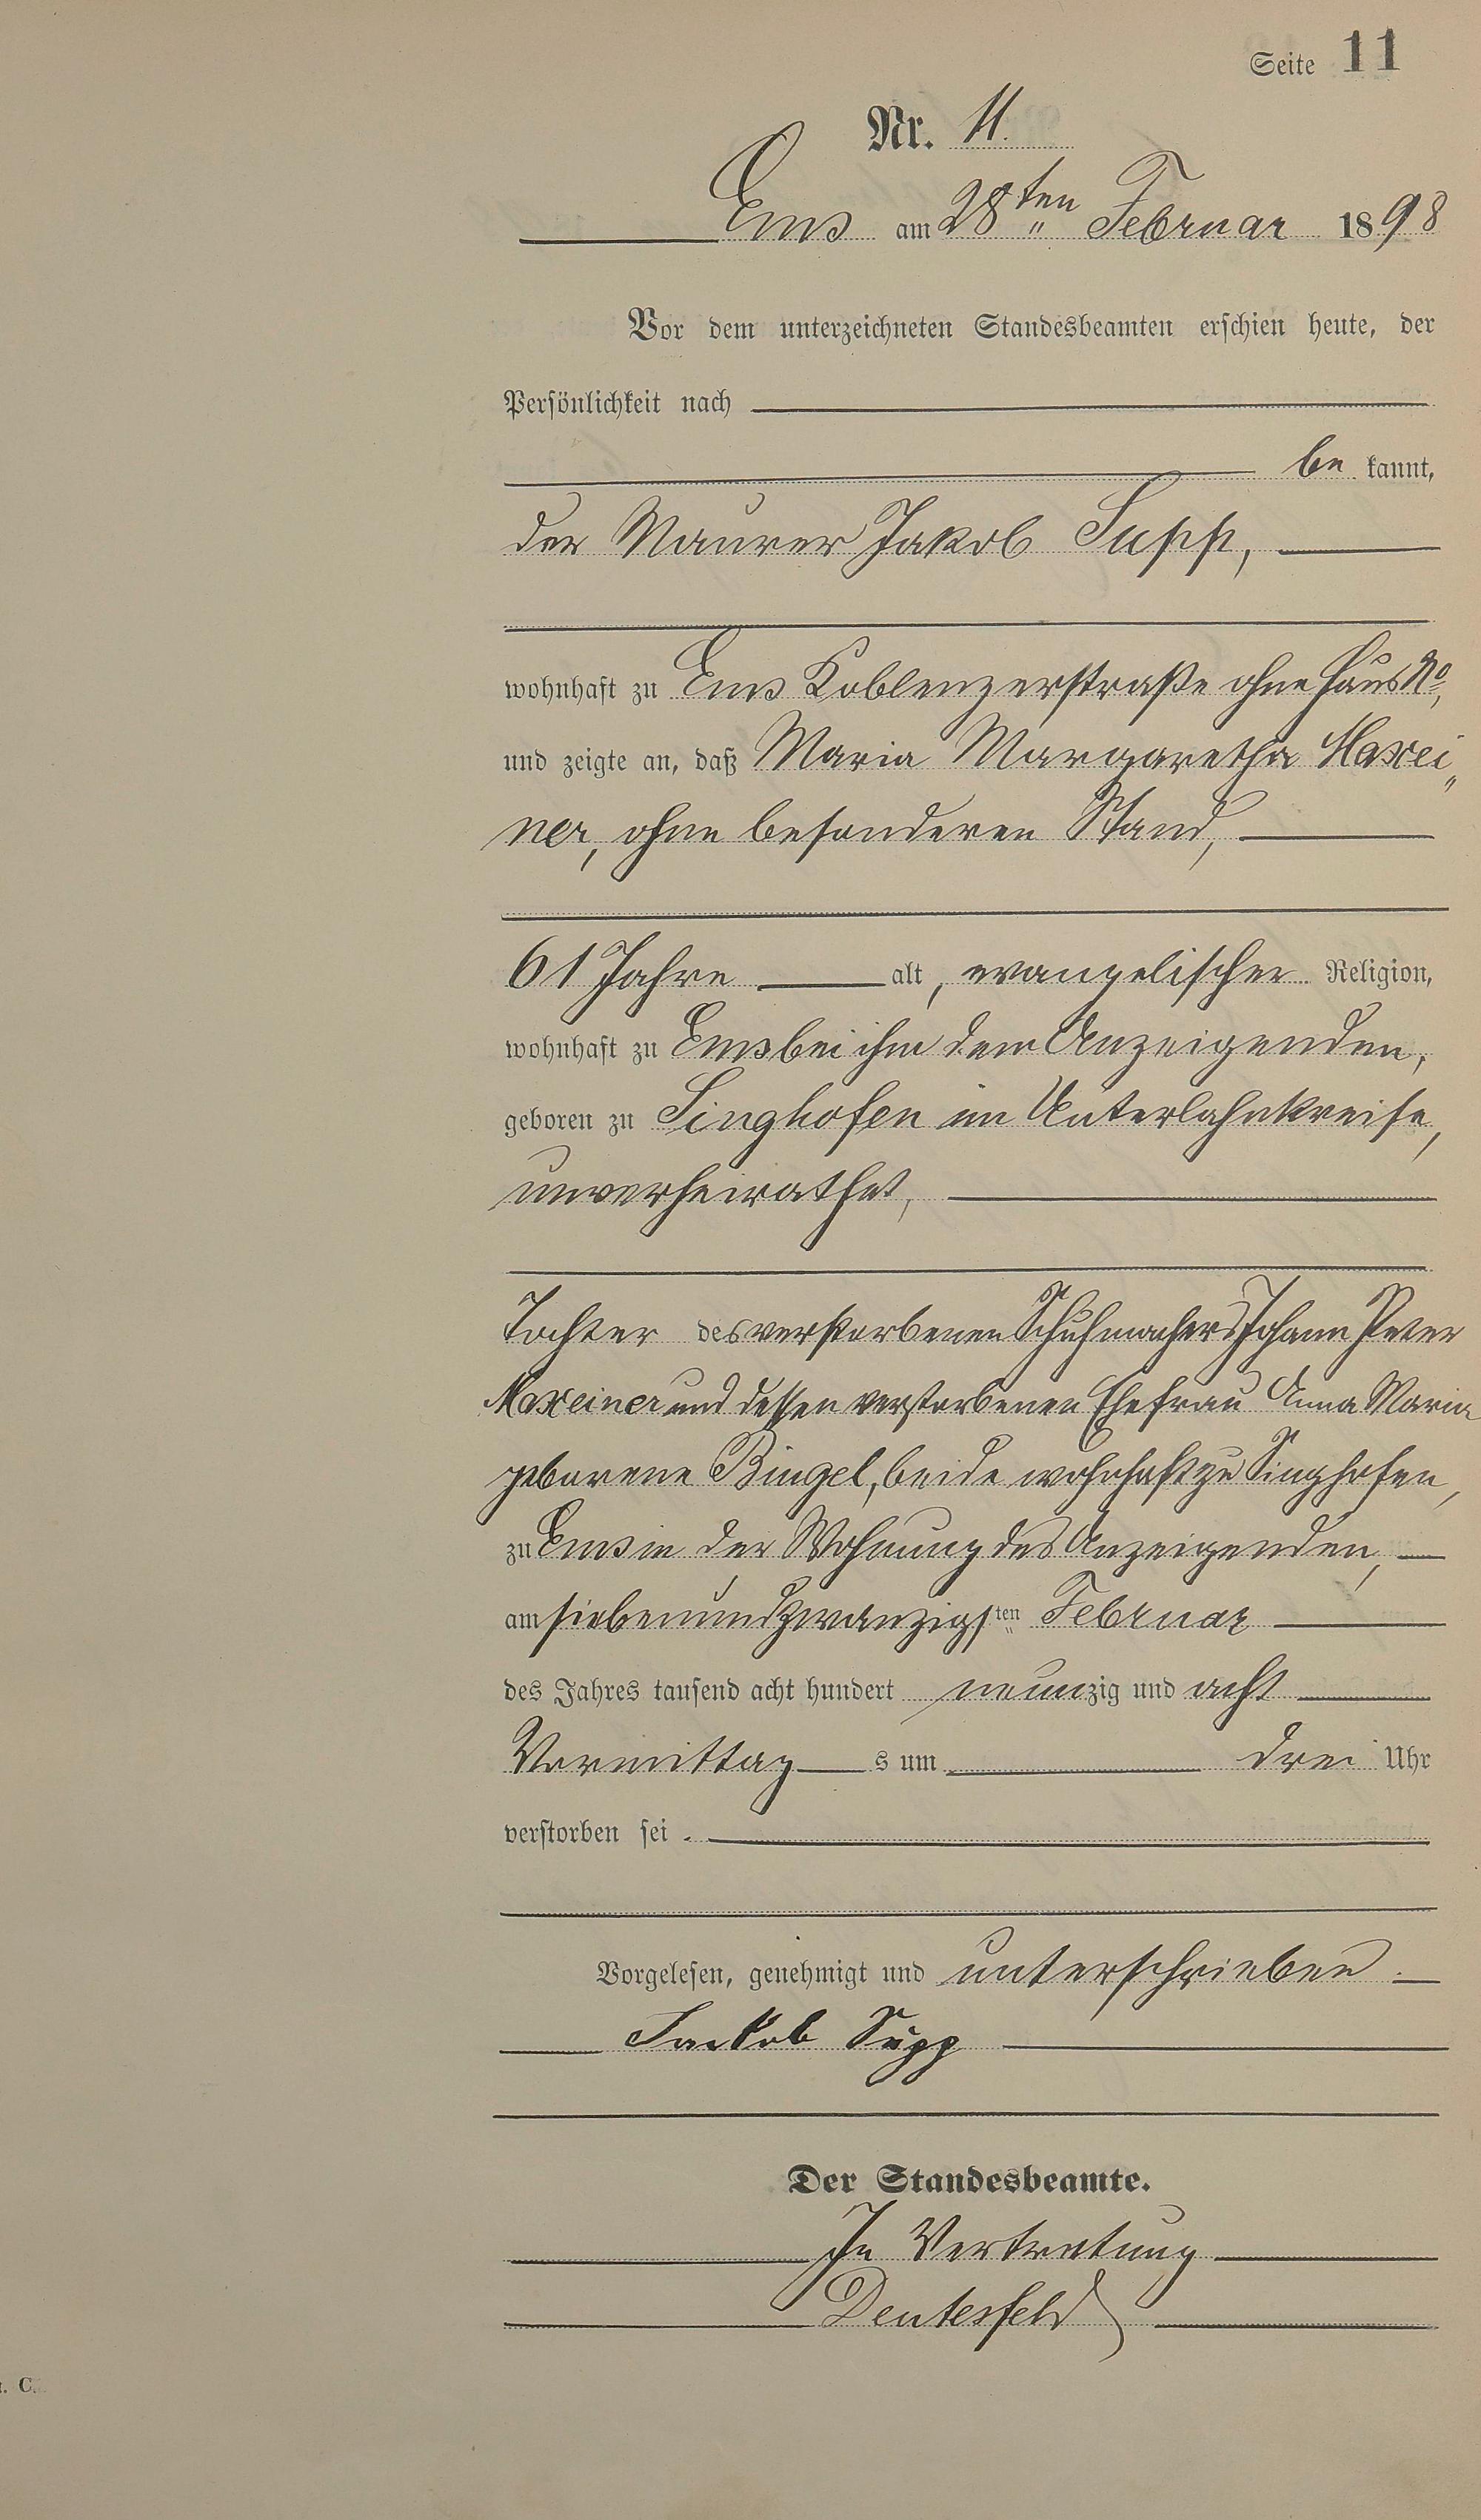 Seite 11
Nr. 11.
Ems am 28ten Februar 1898
Vor dem unterzeichneten Standesbeamten erschien heute, der
Persönlichkeit nach
be kannt,
der Maurer Jakob Supp,
wohnhaft zu Ems Koblenzerstraße ohne Haus No,
und zeigte an, daß Maria Margaretha Maxei„
ner, ohne besonderen Stand,
61 Jahre alt, evangelischer Religion,
wohnhaft zu Ems bei ihm dem Anzeigenden,
geboren zu Singhofen im Unterlahnkreise,
unverheirathet,
Tochter des verstorbenen Schuhmachers Johann Peter
Maxeiner und dessen verstorbenen Ehefrau Anna Maria
geborene Bingel, beide wohnhaft zu Singhofen,
zu Ems in der Wohnung des Anzeigenden,
am siebenundzwanzigsten Februar
des Jahres tausend acht hundert neunzig und acht
Vormittags um drei Uhr
verstorben sei.
Vorgelesen, genehmigt und unterschrieben.
Jackob Supp
Der Standesbeamte.
In Vertretung
Deutesfeld